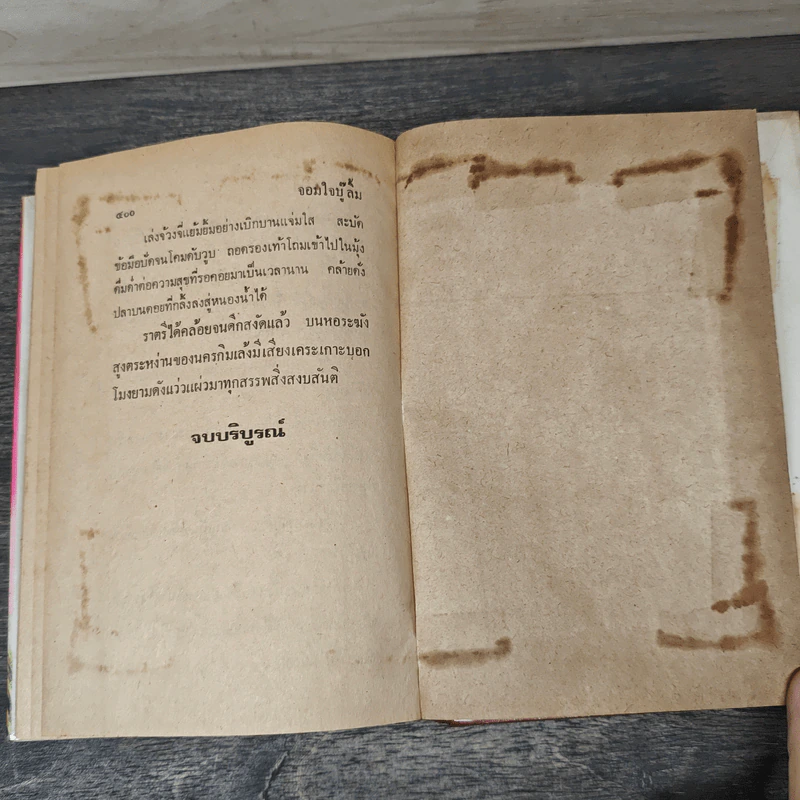 จอมใจบู๊ลิ้ม
๔๐๐
เล่งจ้วงจี่แย้มยิ้มอย่างเบิกบานแจ่มใส สะบัด
ข้อมือปัดจนโคมดับวูบ ถอดรองเท้าโถมเข้าไปในมุ้ง
ดื่มด่ำต่อความสุขที่รอคอยมาเป็นเวลานาน คล้ายดั่ง
ปลาบนดอยที่กลิ้งลงสู่หนองน้ำได้
ราตรีได้คล้อยจนดึกสงัดแล้ว บนหอระฆัง
สูงตระหง่านของนครกิมเล้งมีเสียงเคระเกาะบอก
โมงยามดังแว่วแผ่วมาทุกสรรพสิ่งสงบสันติ
จบบริบูรณ์